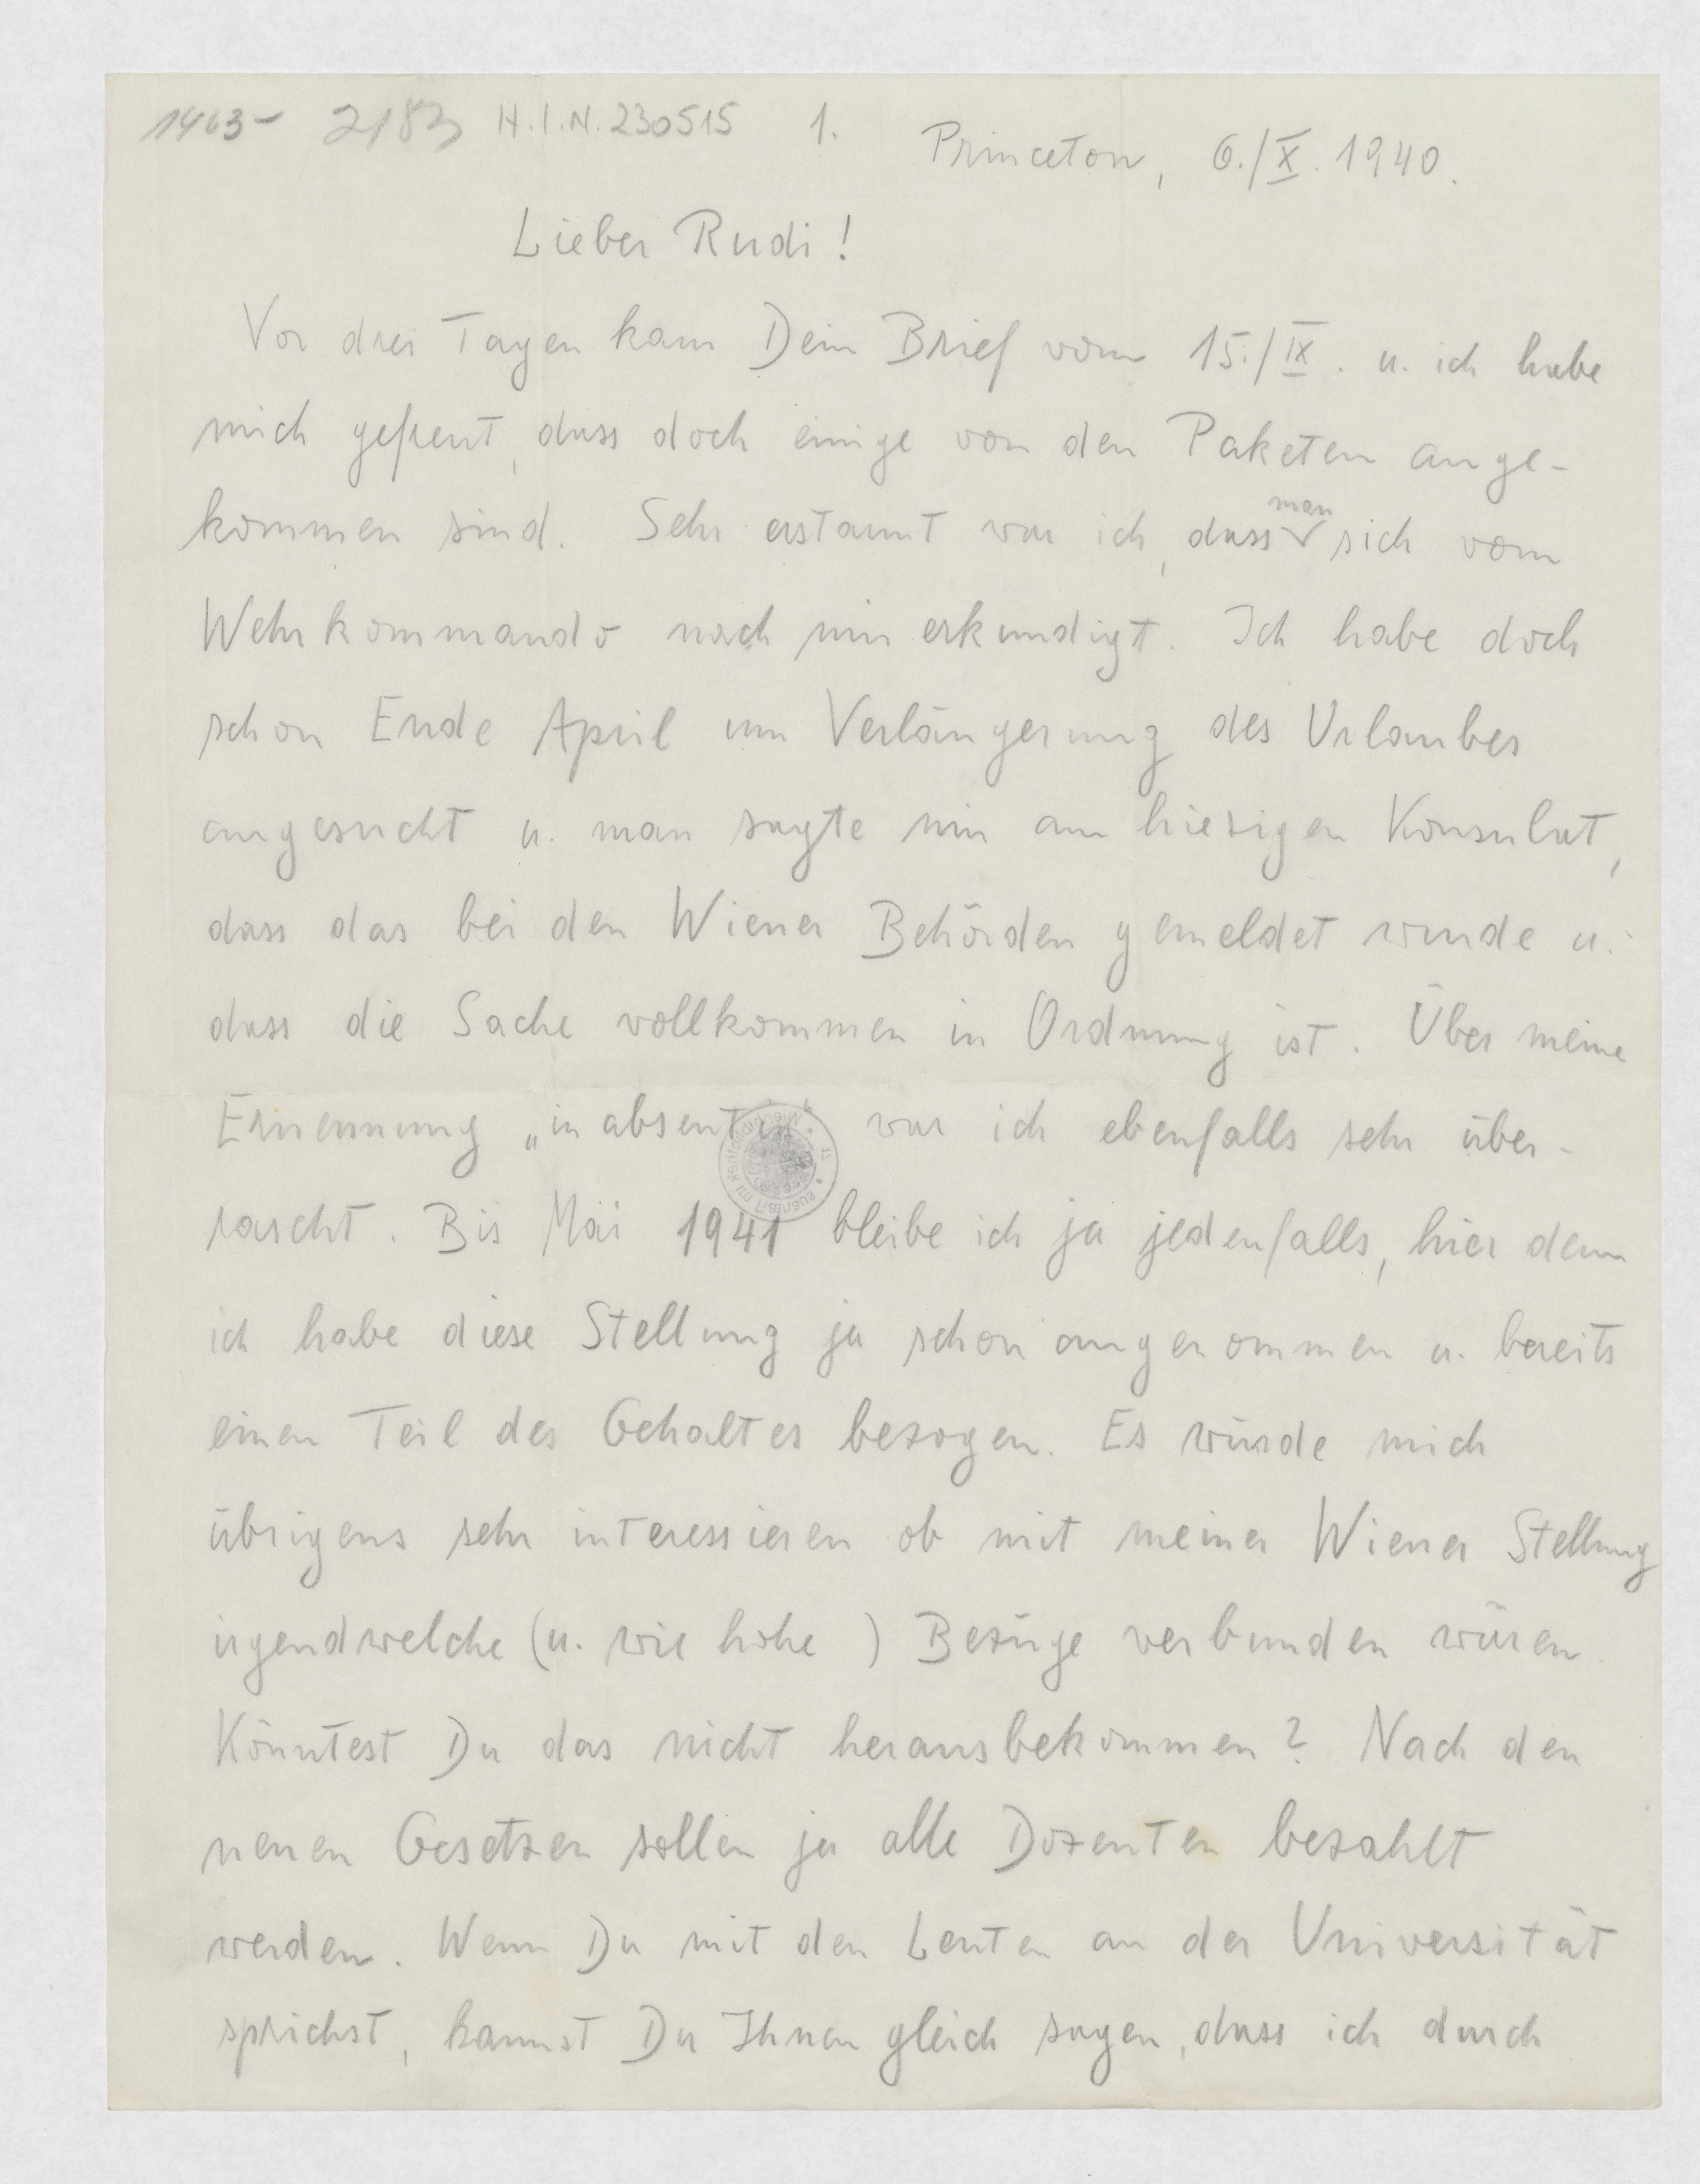 1963- 2183 H.I.N. 230515 1.
Princeton, 6./X. 1940.
Lieber Rudi!
Vor drei Tagen kam Dein Brief vom 15./IX. u. ich habe
mich gefreut, dass doch einige von den Paketen ange-
kommen sind. Sehr erstaunt war ich, dass man sich vom
Wehrkommando nach mir erkundigt. Ich habe doch
schon Ende April um Verlängerung des Urlaubes
angesucht u. man sagte mir am hiesigen Konsulat,
dass das bei den Wiener Behörden gemeldet wurde u.
dass die Sache vollkommen in Ordnung ist. Über meine
Ernennung „in absentia" war ich ebenfalls sehr über-
rascht. Bis Mai 1941 bleibe ich ja jedenfalls, hier denn
ich habe diese Stellung ja schon angenommen u. bereits
einen Teil des Gehaltes bezogen. Es würde mich
übrigens sehr interessieren ob mit meiner Wiener Stellung
irgendwelche (u. wie hohe ) Bezüge verbunden wären.
Könntest Du das nicht herausbekommen? Nach den
neuen Gesetzen sollen ja alle Dozenten bezahlt
werden. Wenn Du mit den Leuten an der Universität
sprichst, kannst Du Ihnen gleich sagen, dass ich durch